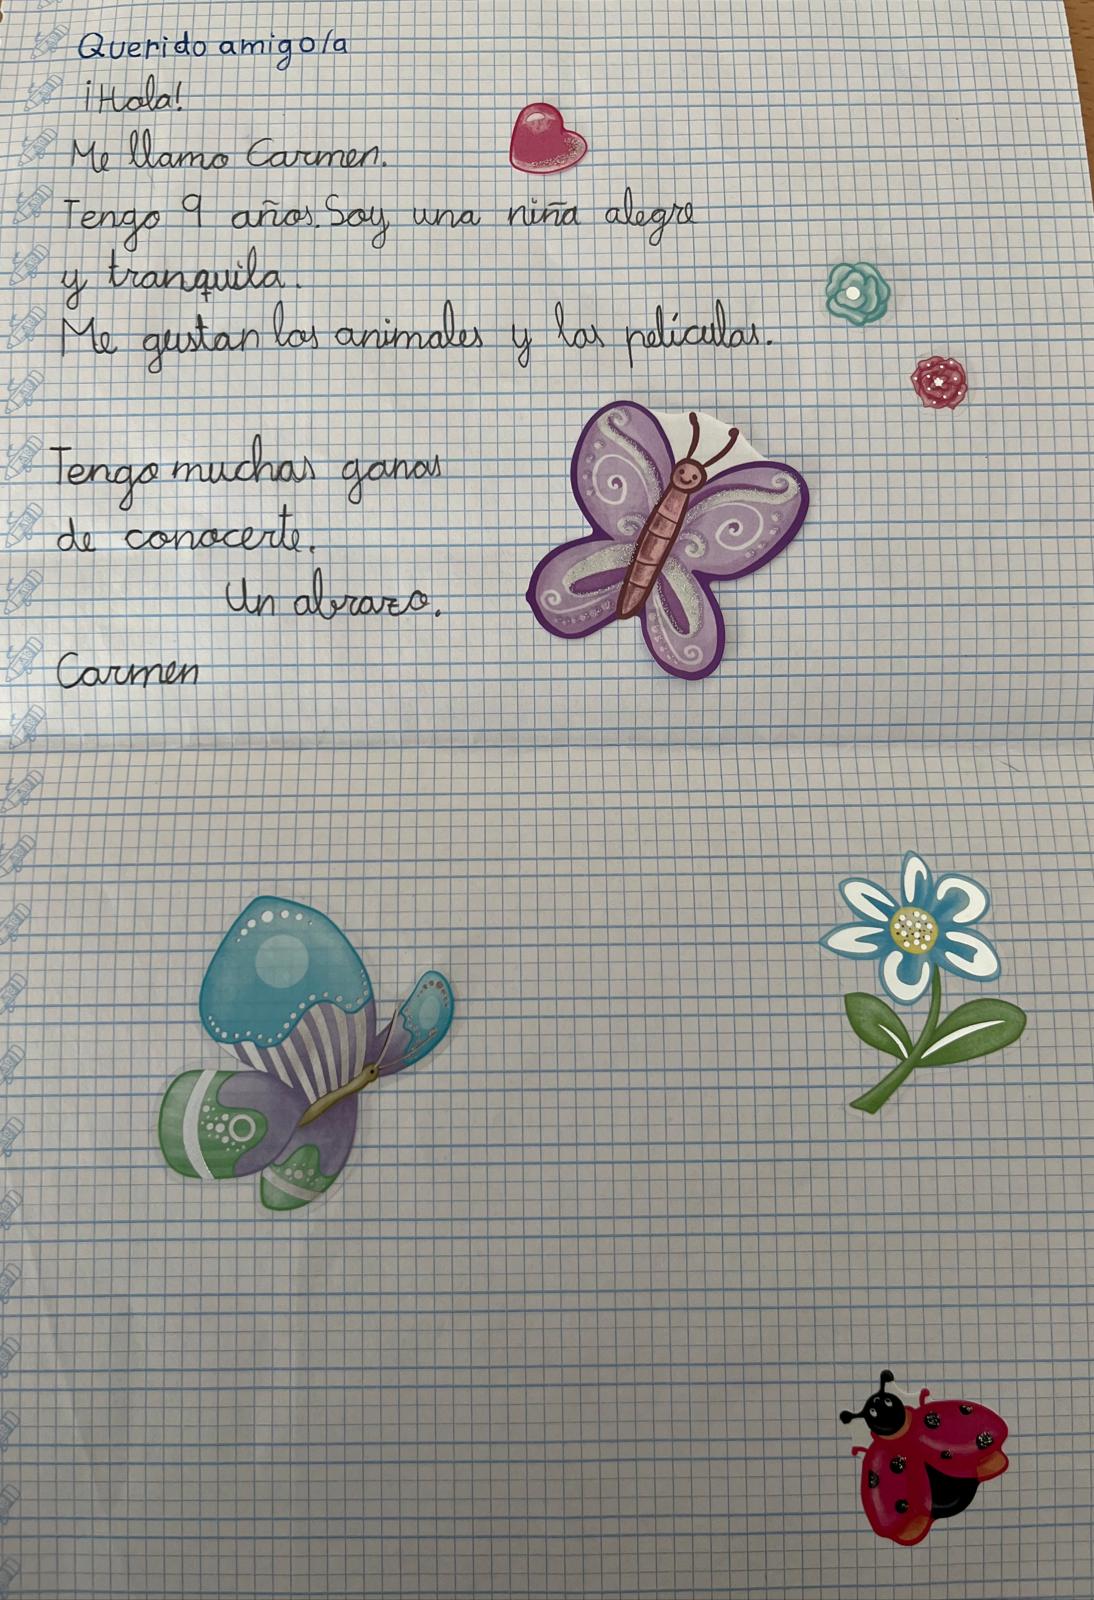 Querido amigo/a
¡Hola!
Me llamo Carmen.
Tengo 9 años. Soy una niña alegre
y tranquila.
Me gustan los animales y las películas.
Tengo muchas ganas
de conocerte.
Un abrazo.
Carmen